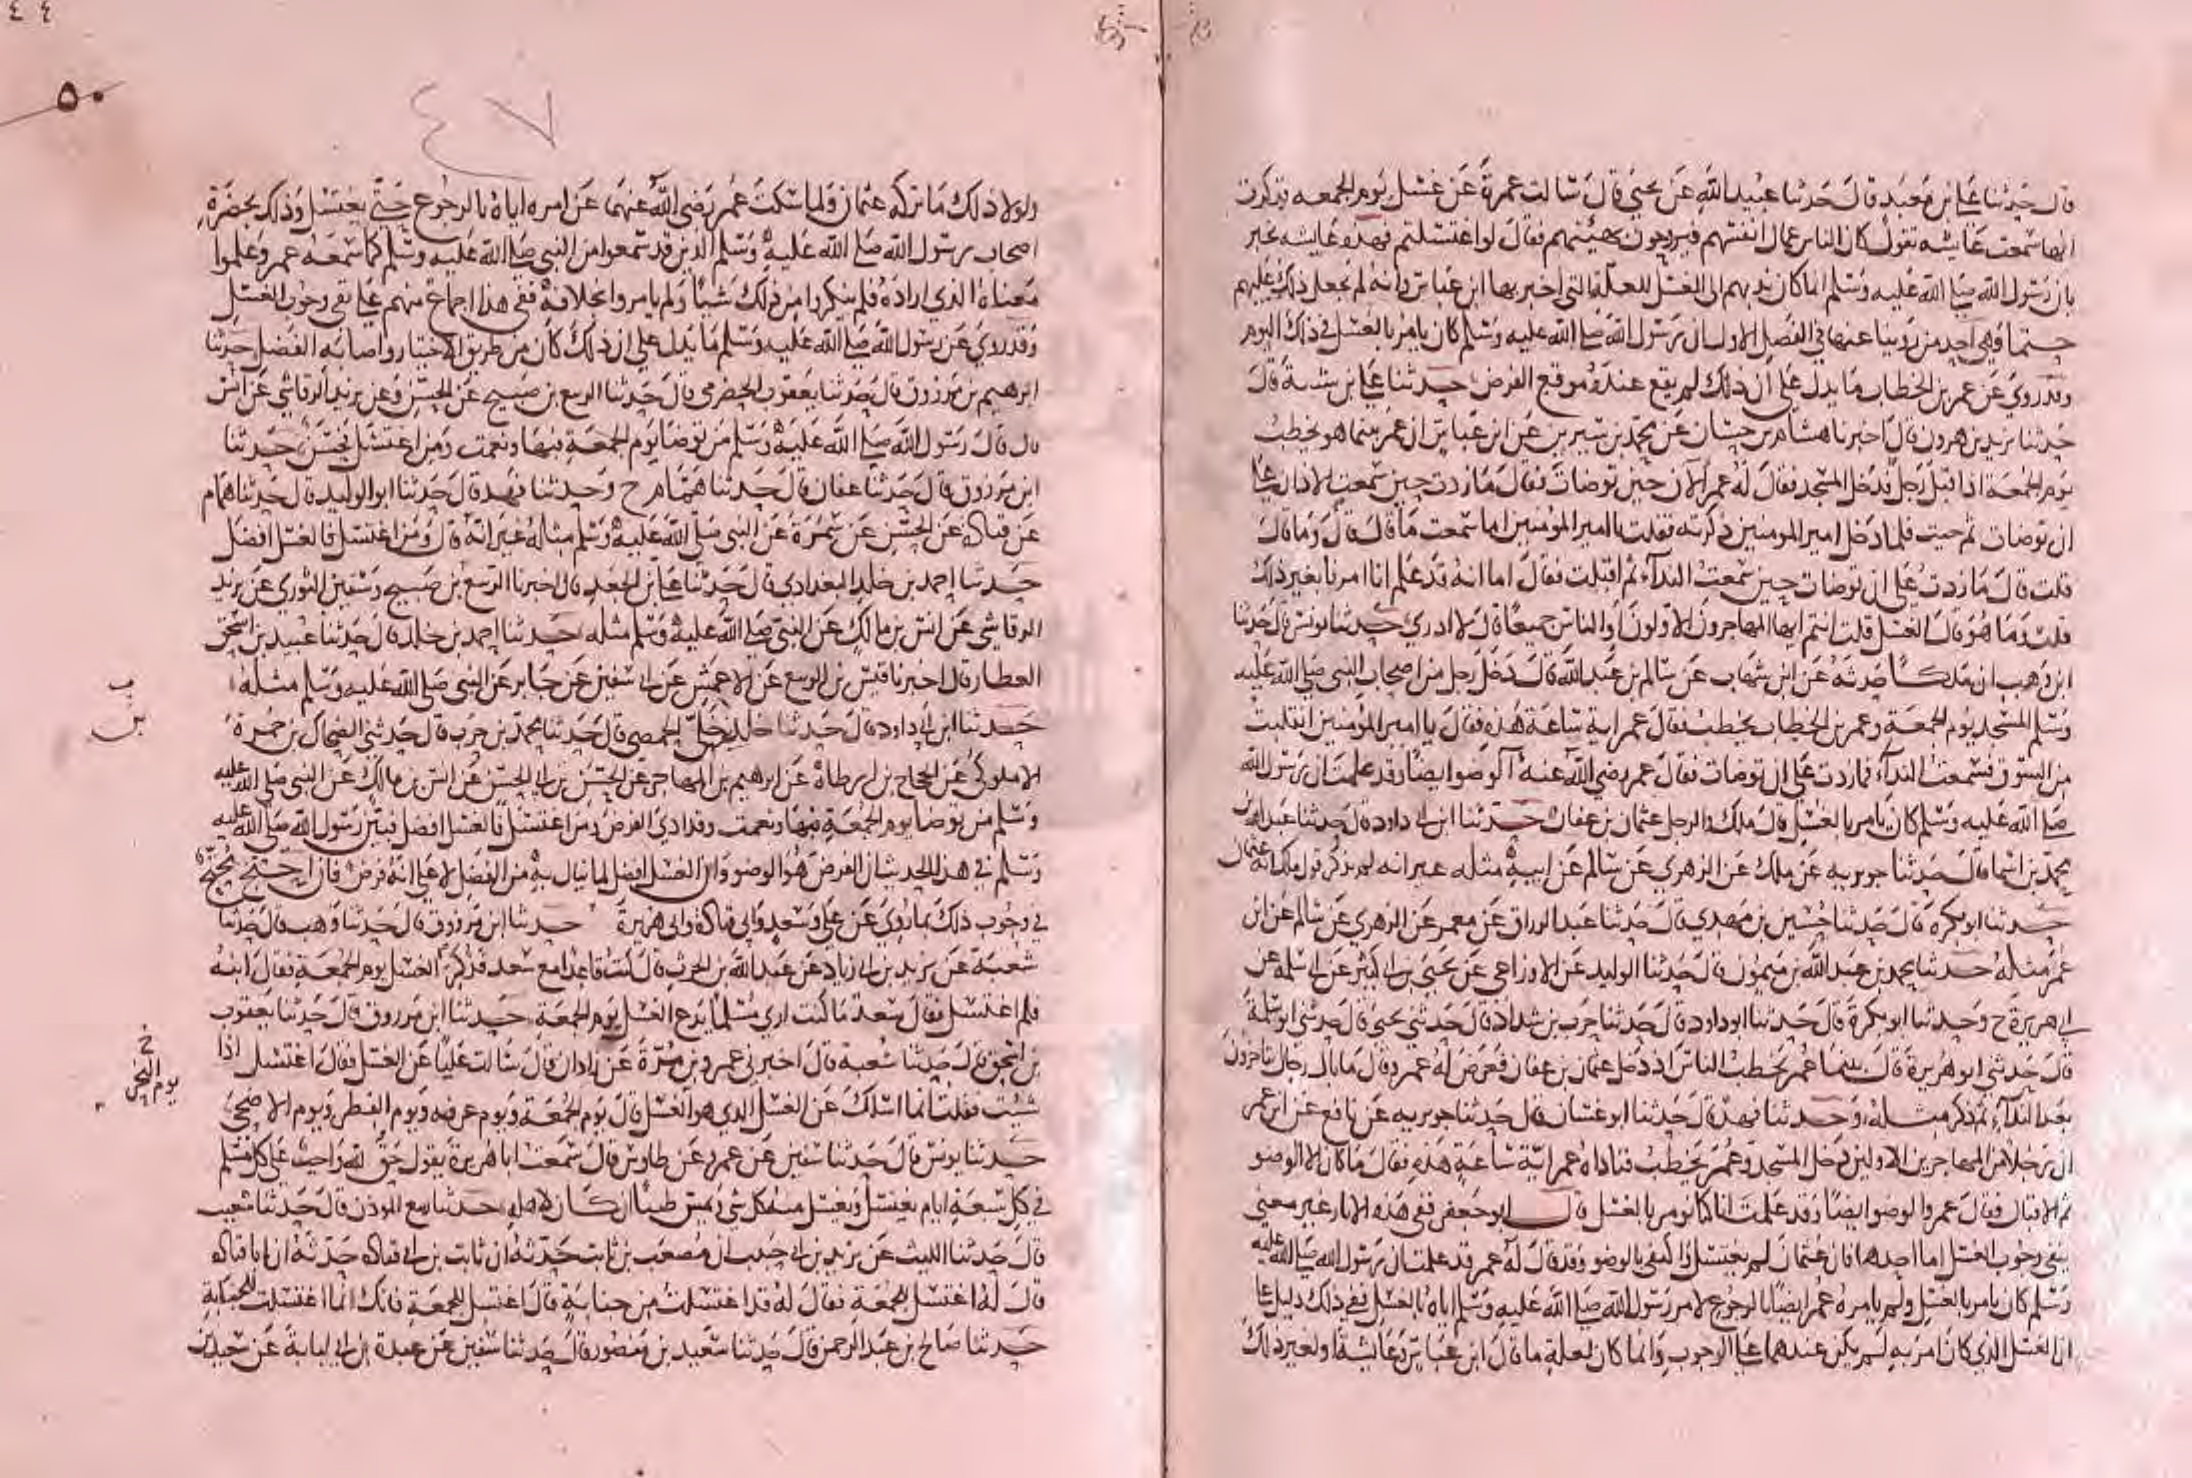 قال حدثنا علي بن معبد قال حدثنا عبيد الله عن يحيى قال سالت عمرة عن غسل يوم الجمعه فذكرت
انها سمعت عائشه تقول كان الناس عمال انفسهم فيروحون بهيئتهم فقال لو اغتسلتم فهذه عايشه تخبر
بان رسول الله صلى الله عليه وسلم انما كان ندبهم الى الغسل للعلة التي اخبر بها ابن عباس وانه لم يجعل ذلك عليهم
حتما وهي احد من روينا عنها في الفصل الاول ان رسول الله صلى الله عليه وسلم كان يامر بالغسل في ذلك اليوم
وقد روي عن عمر بن الخطاب ما يدل على ان ذلك لم يقع عنده موقع الفرض حدثنا علي بن شيبة قال
حدثنا يزيد بن هرون قال اخبرنا هشام بن حسان عن محمد بن سيرين عن ابن عباس ان عمر بينما هو يخطب
يوم الجمعة اذ اقبل رجل فدخل المسجد فقال له عمر الان حين توضات فقال ما زدت حين سمعت الاذان على
ان توضات ثم جيت فلما دخل امير المومنين ذكرته فقلت يا امير المؤمنين اما سمعت ما قال قال وما قال
قلت قال ما زدت على ان توضات حين سمعت النداء ثم اقبلت فقال اما انه قد علم انا امرنا بغير ذلك
قلت وما هو قال الغسل قلت انتم ايها المهاجرون الاولون او الناس جميعا قال لا ادري حدثنا يونس قال حدثنا
ابن وهب ان ملكا حدثه عن ابن شهاب عن سالم بن عبد الله قال دخل رجل من اصحاب النبي صلى الله عليه
وسلم المسجد يوم الجمعة وعمر بن الخطاب يخطب فقال عمر اية ساعة هذه فقال يا امير المؤمنين انقلبت
من السوق فسمعت النداء فما زدت على ان توضات فقال عمر رضي الله عنه الوضوا ايضا وقد علمت ان رسول الله
صلى الله عليه وسلم كان يامر بالغسل قال ملك والرجل عثمان بن عفان حدثنا ابن ابي داود قال حدثنا عبد الله بن
محمد بن اسما قال حدثنا جويريه عن ملك عن الزهري عن سالم عن ابيه مثله غير انه لم يذكر قول ملك انه عثمان
حدثنا ابو بكره قال حدثنا حسين بن مهدي قال حدثنا عبد الرزاق عن معمر عن الزهري عن سالم عن ابن
عمر مثله حدثنا محمد بن عبد الله بن ميمون قال حدثنا الوليد عن الاوزاعي عن يحيى بن ابي كثير عن ابي سلمه عن
ابي هريرة ح وحدثنا ابو بكرة قال حدثنا ابو داود قال حدثنا حرب بن شداد قال حدثني يحيى قال حدثني ابو سلمة
قال حدثني ابو هريرة قال بينما عمر يخطب الناس اذ دخل عثمان بن عفان فعرض له عمر وقال ما بال رجال يتاخرون
بعد النداء ثم ذكر مثله وحدثنا فهد قال حدثنا ابو غسان قال حدثنا جويريه عن نافع عن ابن عمر
ان رجلا من المهاجرين الاولين دخل المسجد وعمر يخطب فناداه عمر اية ساعة هذه فقال ما كان الا الوضو
ثم الاقبال فقال عمر والوضوا ايضا وقد علمت انا كنا نومر بالغسل قال ابو جعفر ففي هذه الاثار غير معنى
ينفي وجوب الغسل اما احدها فان عثمان لم يغتسل واكتفى بالوضو وقد قال له عمر قد علمت ان رسول الله صلى الله عليه
وسلم كان يامر بالغسل ولم يامره عمر ايضا بالرجوع لامر رسول الله صلى الله عليه وسلم اياه بالغسل ففي ذلك دليل على
ان الغسل الذي كان امر به لم يكن عندهما على الوجوب وانما كان لعلة ما قال ابن عباس وعايشة او لغير ذلك
٤٤
٥٠
٤٧
ولولا ذلك ما تركه عثمان ولما سكت عمر رضي الله عنهما عن امره اياه بالرجوع حتى يغتسل وذلك بحضرة
اصحاب رسول الله صلى الله عليه وسلم الذين قد سمعوا من النبي صلى الله عليه وسلم كما سمعه عمر وعلموا
معناه الذي اراده فلم ينكروا من ذلك شيا ولم يامروا بخلافه ففي هذا اجماع منهم على نفي وجوب الغسل
وقد روي عن رسول الله صلى الله عليه وسلم ما يدل على ان ذلك كان من طريق الاختيار واصابة الفضل حدثنا
ابرهيم بن مرزوق قال حدثنا يعقوب الحضرمي قال حدثنا الربيع بن صبيح عن الحسن وعن يزيد الرقاشي عن انس
قال قال رسول الله صلى الله عليه وسلم من توضا يوم الجمعة فبها ونعمت ومن اغتسل فحسن حدثنا
ابن مرزوق قال حدثنا عفان قال حدثنا همام ح وحدثنا فهد قال حدثنا ابو الوليد قال حدثنا همام
عن قتادة عن الحسن عن سمرة عن النبي صلى الله عليه وسلم مثله غير انه قال ومن اغتسل فالغسل افضل
حدثنا احمد بن خلد البغدادي قال حدثنا علي بن الجعد قال اخبرنا الربيع بن صبيح وسفين الثوري عن يزيد
الرقاشي عن انس بن مالك عن النبي صلى الله عليه وسلم مثله حدثنا احمد بن خلد قال حدثنا عبيد بن اسحق
العطار قال اخبرنا قيس بن الربيع عن الاعمش عن ابي سفين عن جابر عن النبي صلى الله عليه وسلم مثله
حدثنا ابن ابي داود قال حدثنا خلد بن خلي الحمصي قال حدثنا محمد بن حرب قال حدثني الضحاك بن حمرة
الاملوكي عن الحجاج بن ارطاة عن ابرهيم بن المهاجر عن الحسن بن ابي الحسن عن انس بن مالك عن النبي صلى الله عليه
وسلم من توضا يوم الجمعة فبها ونعمت وقد ادى الفرض ومن اغتسل فالغسل افضل فبين رسول الله صلى الله عليه
وسلم في هذا الحديث ان الفرض هو الوضو وان الغسل افضل لما ينال به من الفضل لا على انه فرض فان احتج محتج
في وجوب ذلك بما روي عن علي وسعد وابي قتادة وابي هريرة حدثنا ابن مرزوق قال حدثنا وهب قال حدثنا
شعبة عن يزيد بن ابي زياد عن عبد الله بن الحرث قال كنت قاعدا مع سعد فذكر الغسل يوم الجمعة فقال ابنه
فلم اغتسل فقال سعد ما كنت ارى مسلما يدع الغسل يوم الجمعة حدثنا ابن مرزوق قال حدثنا يعقوب
بن اسحق قال حدثنا شعبة قال اخبرني عمرو بن مرة عن زاذان قال سالت عليا عن الغسل فقال اغتسل اذا
شئت فقلت انما اسلك عن الغسل الذي هو الغسل قال يوم الجمعة ويوم عرفه ويوم الفطر ويوم الاضحى
يوم النحر
حدثنا يونس قال حدثنا سفين عن عمرو عن طاوس قال سمعت ابا هريرة يقول حق لله واجب على كل مسلم
في كل سبعة ايام يغتسل ويغسل منه كل شي ويمس طيبا ان كان لاهله حدثنا ربيع الموذن قال حدثنا شعيب
قال حدثنا الليث عن يزيد بن ابي حبيب ان مصعب بن ثابت حدثه ان ثابت بن ابي قتاده حدثه ان ابا قتاده
قال له اغتسل للجمعة فقال له قد اغتسلت من جنابة قال اغتسل للجمعة فانك انما اغتسلت للجنابة
حدثنا صالح بن عبد الرحمن قال حدثنا سعيد بن منصور قال حدثنا سفين عن عبدة بن ابي لبابة عن سعيد بن